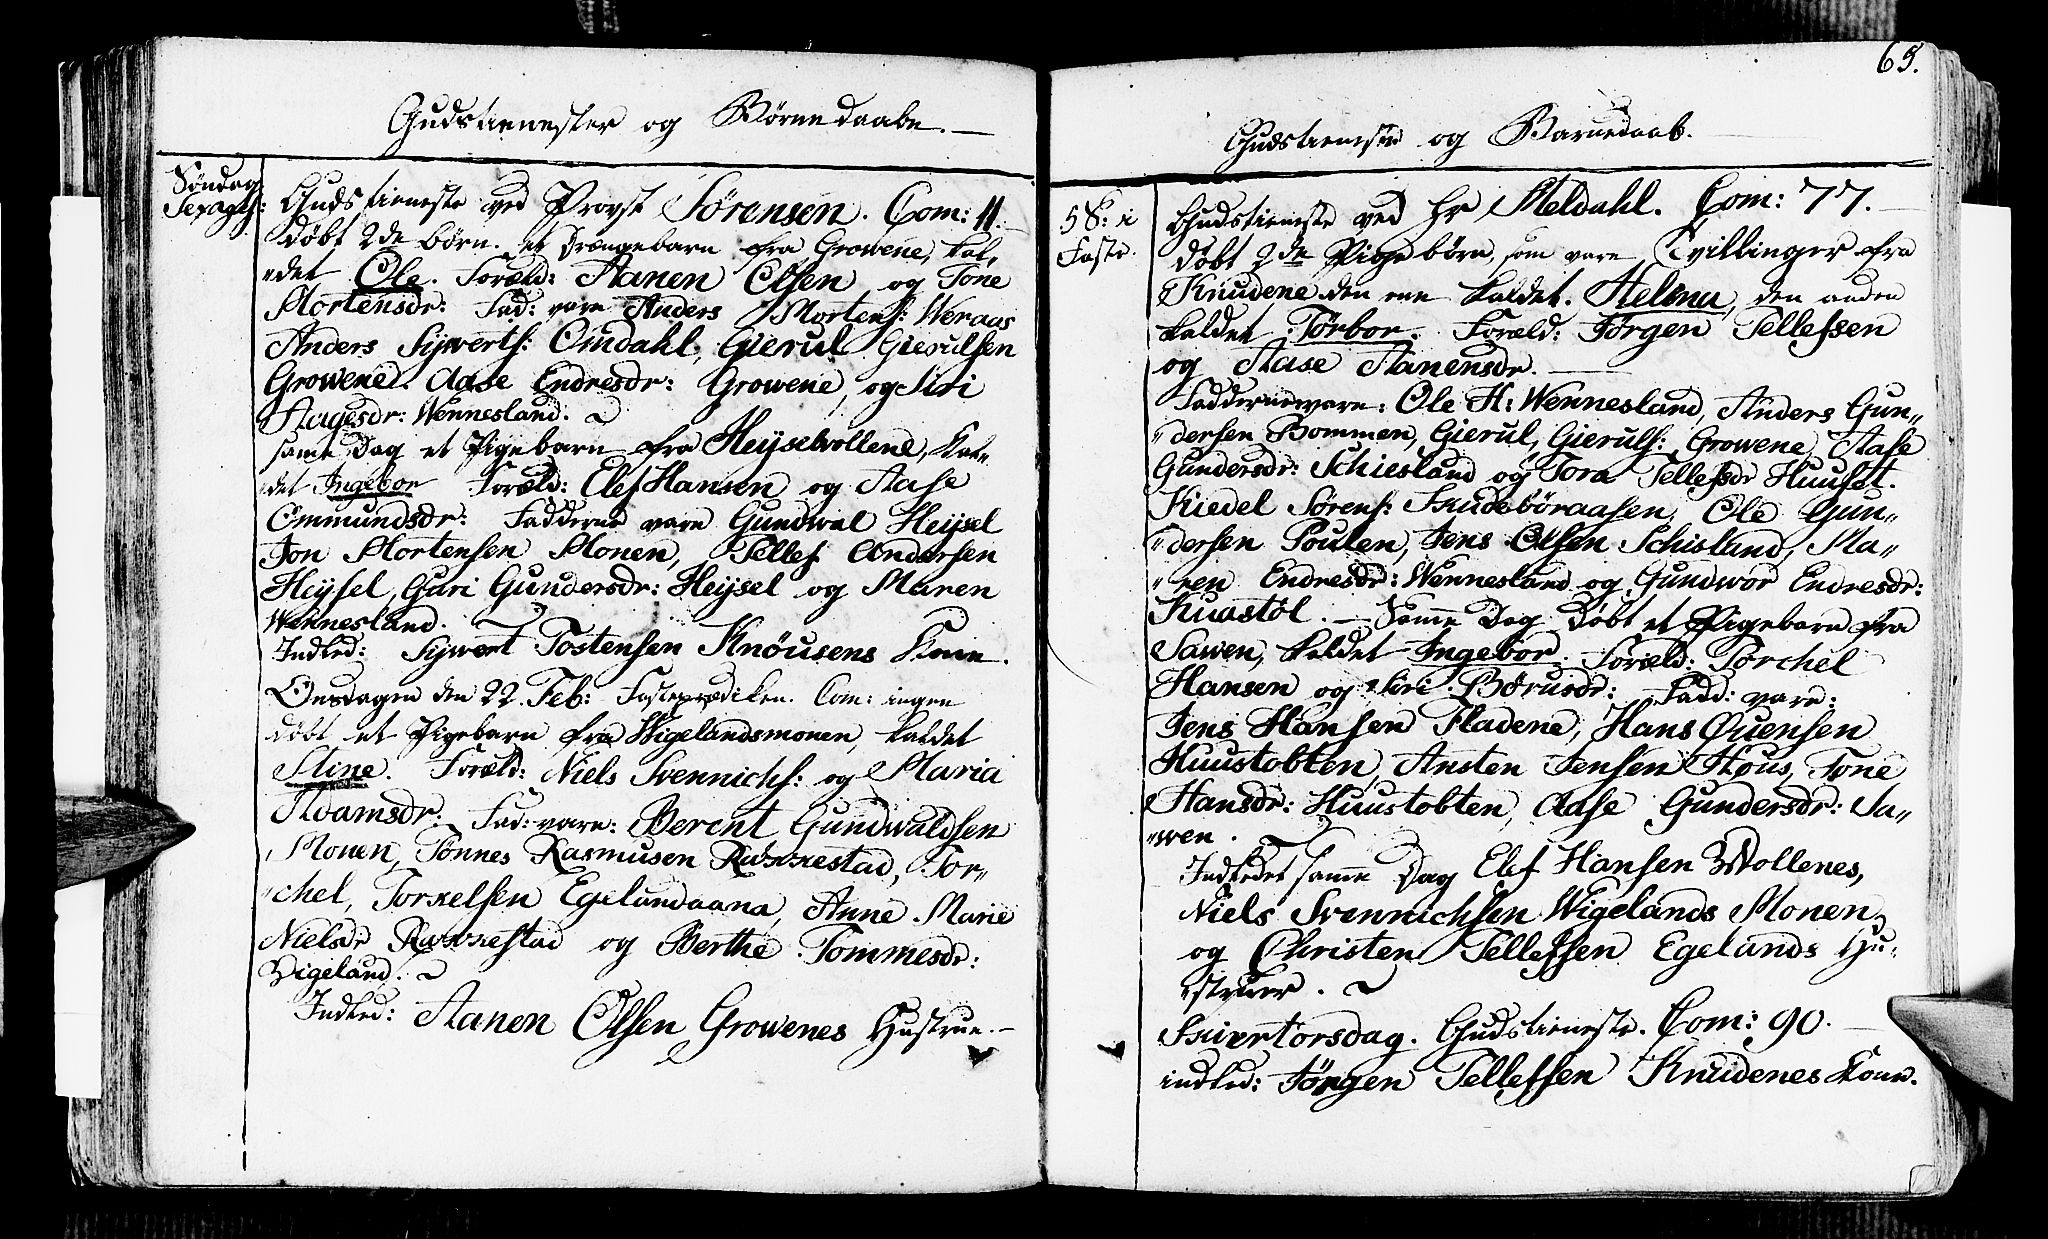 Gudstienester og Börnedaabe.
Söndag
Sexages:
Gudstieneste ved Provst Sörensen. Com: 11.
döbt 2de börn. et Drengebarn fra Growene, kal„
„det Ole. Foræld: Aanen Olsen og Tone
Mortensdr: Fad: vare Anders Mortens: Weraas
Anders Sywerts: Omdahl, Gierul Gierulsen
Growene. Aase Endresdr: Growene, og Siri
Aagesdr: Wennesland.
samme Dag et Pigebarn fra Heyselwollene, kal„
„det Ingebor Foræld: Elef Hansen og Aase
Ommundsdr: Fadderne vare Gundwal Heysel
Jon Mortensen Monen, Tellef Andersen
Heysel, Guri Gundersdr: Heysel og Maren
Wennesland.
Indled: Sywert Tostensen Knöusens Kone.
Onsdagen den 22. Feb: Fasteprædiken. Com: ingen
döbt et Pigebarn fra Wigelandsmonen, kaldet
Stine. Foræld: Niels Svennichs: og Maria
Adamsdr: Fad: vare: Berent Gundwaldsen
Monen, Tönnes Rasmusen Raxxestad, Tor„
„chel, Torkelsen Egelandaana, Anne Marie
Nielsdr Raxxestad og Berthe Tommesdr:
Vigeland.
Indled: Aanen Olsen Growenes Hustrue.
65.
Gudstieneste og Barnedaab.
5 S: i
Faste.
Gudstieneste ved Hr Meldahl. Com: 77.
döbt 2de Pigebörn, som vare Tvillinger fra
Knudene den ene kaldet. Helena, den anden
kaldet Törbor. Foræld: Jörgen Tellefsen
og Aase Aanensdr.
Fadderne vare: Ole H: Wennesland, Anders Gun„
„dersen Bommen, Gierul, Gieruls: Growene, Aase
Gundersdr: Schiesland og Tora Tellefsdr Huuset.
Kiedel Sörens: Skudeböraasen, Ole Gun„
„dersen Poulen, Jens Olsen Schisland, Ma„
„ren Endresdr: Wennesland og Gundwor Endresdr:
Kuastöl. — Samme Dag döbt et Pigebarn fra
Sawen, kaldet Ingebor. Foræld: Torchel
Hansen og Siri Börusdr: Fadd: vare:
Jens Hansen Fladene, Hans Øuensen
Huustobten, Ansten Jensen Hous, Tone
Hansdr: Huustobten, Aase Gundersdr: Sa„
„wen.
Indledet samme Dag Elef Hansen Wollenes,
Niels Svennichsen Wigelands Monen
og Christen Tellefsen Egelands Hu„
„struer.
Skiertorsdag. Gudstieneste. Com: 90.
indled: Jörgen Tellefsen Knudenes Kone.